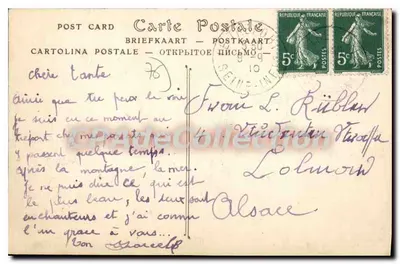 POST CARD
Carte Postale
BRIEFKAART — POSTKAART
CARTOLINA POSTALE — ОТКРЫТОЕ ПИСЬМО
REPUBLIQUE FRANÇAISE
5c
POSTES
REPUBLIQUE FRANÇAISE
5c
POSTES
10
SEINE-INF
chère tante
76
ainsi que tu peux le voir
je suis en ce moment au
tréport
y passent quelque temps.
Après la montagne, la mer.
Je ne puis dire ce qui est
le plus beau, les deux sont
enchanteurs et j'ai connu
l'un grâce à vous...
Ton Marcel
Frau L. Kübler
4
Colmar
Alsace